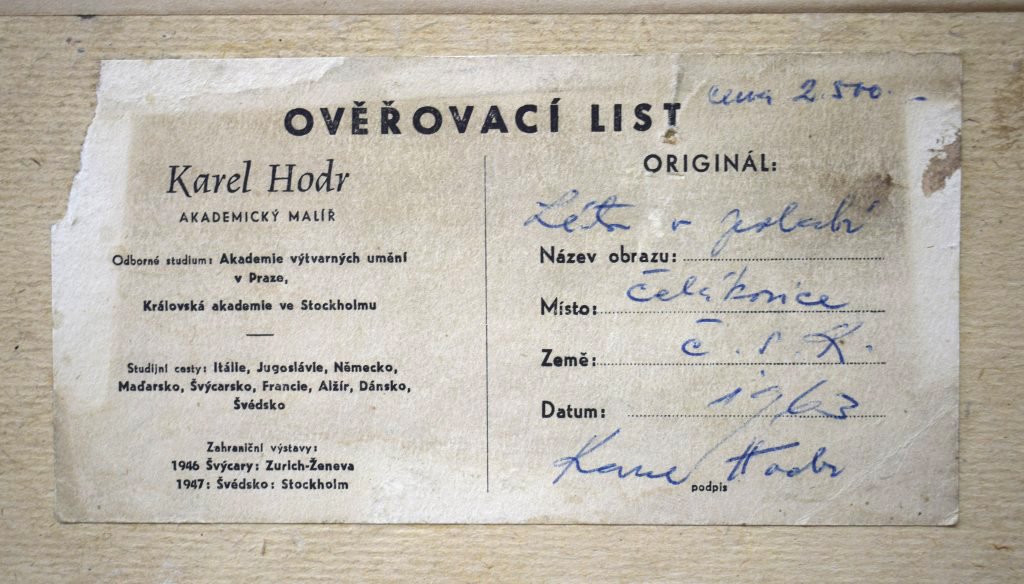 cena 2.500.-
OVĚŘOVACÍ LIST
Karel Hodr
AKADEMICKÝ MALÍŘ
Odborné studium: Akademie výtvarných umění
v Praze,
Královská akademie ve Stockholmu
Studijní cesty: Itálie, Jugoslávie, Německo,
Maďarsko, Švýcarsko, Francie, Alžír, Dánsko,
Švédsko
Zahraniční výstavy:
1946 Švýcary: Zurich-Ženeva
1947: Švédsko: Stockholm
ORIGINÁL:
Léto v polabí
Název obrazu:
Místo: Čelákovice
Země: Č.S.R.
Datum: 1963
Karel Hodr
podpis